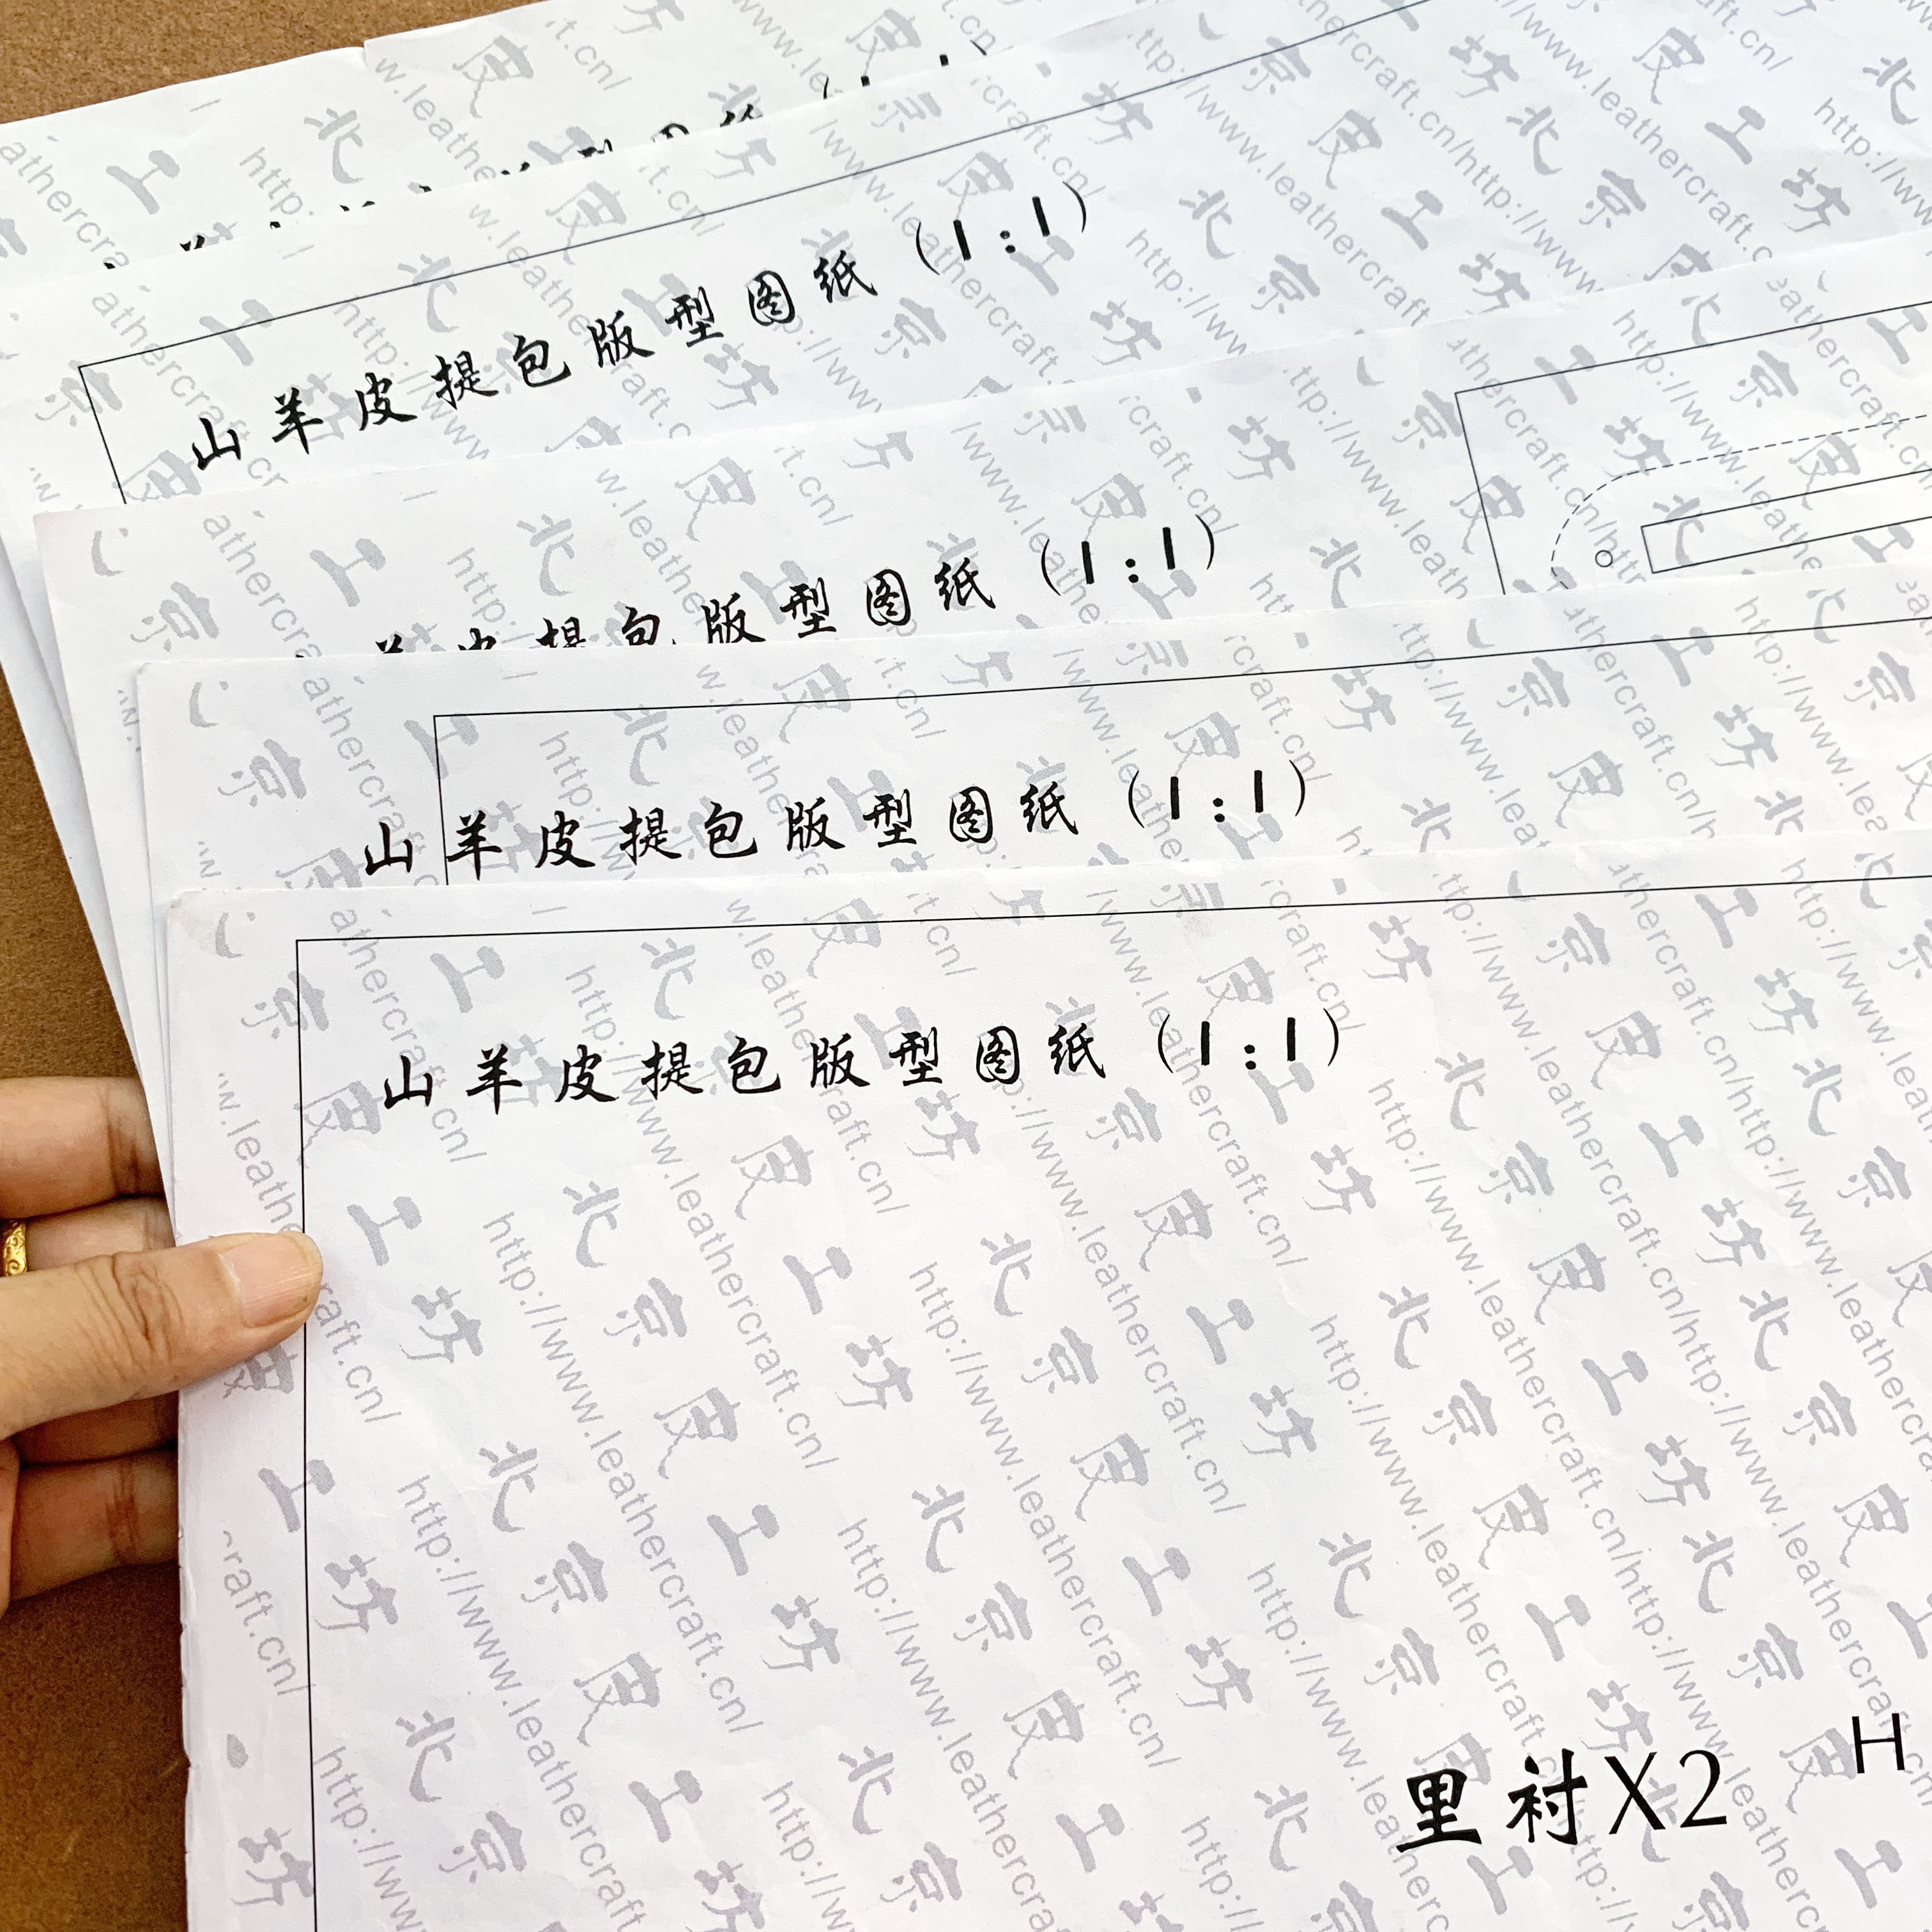 山羊皮提包版型图纸（1:1）
山羊皮提包版型图纸（1:1）
山羊皮提包版型图纸（1:1）
山羊皮提包版型图纸（1:1）
里衬X2
H
北京皮工坊
http://www.leathercraft.cn/